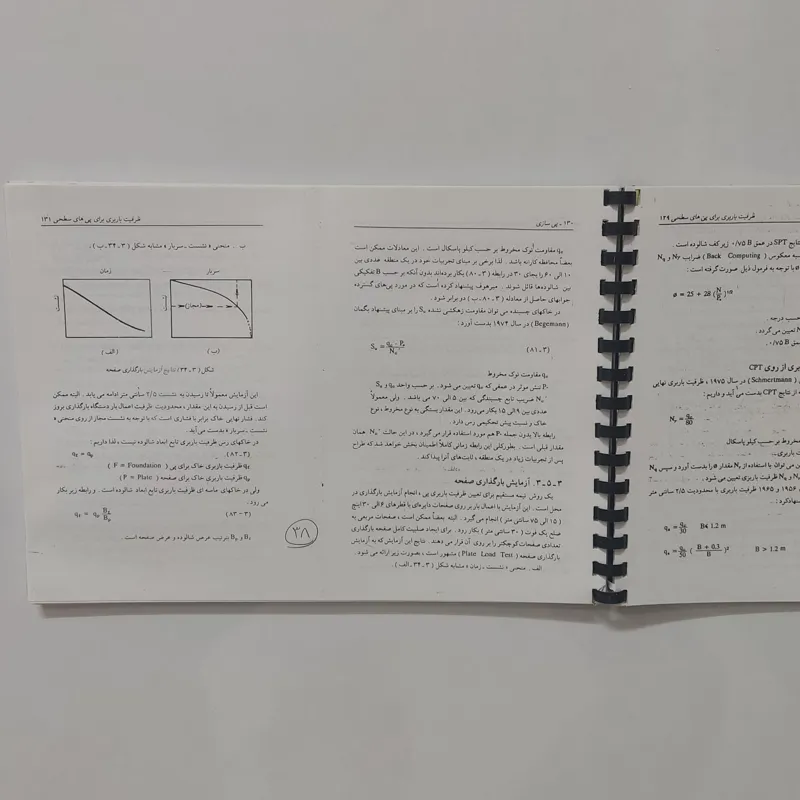 ظرفیت باربری برای پی های سطحی ۱۲۹
نتایج SPT در عمق ۰/۷۵ B زیر کف شالوده است.
محاسبه معکوس ( Back Computing ) ضرایب Nγ و Nq
ø با توجه به فرمول ذیل صورت گرفته است :
ø = 25 + 28 (N/P̄)^1/2
حسب درجه .
تعیین می گردد .
عمق ۰/۷۵ B .
باربری از روی CPT
( Schmertmann ) در سال ۱۹۷۵ ، ظرفیت باربری نهایی
از نتایج CPT بدست می آید و داریم :
Nγ = qc/80
مخروط بر حسب کیلو پاسکال
باربری
می توان با استفاده از Nγ مقدار ø را بدست آورد و سپس Nq
و Nc ظرفیت باربری تعیین می شود .
۱۹۵۶ و ۱۹۶۵ ظرفیت باربری با محدودیت ۲/۵ سانتی متر
پیشنهاد کرد :
qa = qc/30 B< 1.2 m
qa = qc/50 ( B + 0.3 / B )² B > 1.2 m
۱۳۰ ـ پی سازی
qc مقاومت نوک مخروط بر حسب کیلو پاسکال است . این معادلات ممکن است
بعضاً محافظه کارانه باشد . لذا برخی بر مبنای تجربیات خود در یک منطقه عددی بین
۱۰ الی ۶۰ را بجای 30 در رابطه (۳ ـ ۸۰) بکار برده‌اند بدون آنکه بر حسب B تفکیکی
بین شالوده‌ها قائل شوند . میرهوف پیشنهاد کرده است که در مورد پی‌های گسترده
جوابهای حاصل از معادله ( ۳ ـ ۸۰ ـ ب ) دو برابر شود .
در خاکهای چسبنده می توان مقاومت زهکشی نشده Su را بر مبنای پیشنهاد بگمان
(Begemann) در سال ۱۹۷۴ بدست آورد :
Su = qc - Po / Nk' (۳ ـ ۸۱)
qc مقاومت نوک مخروط
Po تنش موثر در عمقی که qc تعیین می شود . بر حسب واحد qc و Su
Nk' ضریب تابع چسبندگی که بین ۵ الی ۷۰ می باشد . ولی معمولاً
عددی بین ۹ الی ۱۵ بکار می‌رود . این مقدار بستگی به نوع مخروط ، نوع
خاک و نسبت پیش تحکیمی رس دارد .
رابطه بالا بدون جمله Po هم مورد استفاده قرار می گیرد ، در این حالت Nk' همان
مقدار قبلی است . بطور کلی این رابطه زمانی کاملاً اطمینان بخش خواهد شد که طراح
پس از تجربیات زیاد در یک منطقه ، ثابت‌های آنرا پیدا کند.
۳ ـ ۵ ـ ۳ . آزمایش بارگذاری صفحه
یک روش نیمه مستقیم برای تعیین ظرفیت باربری پی ، انجام آزمایش بارگذاری در
محل است . این آزمایش با اعمال بار بر روی صفحات دایره‌ای با قطرهای ۶ الی ۳۰ اینچ
( ۱۵ الی ۷۵ سانتی متر ) انجام می گیرد . البته بعضاً ممکن است ، صفحات مربعی به
ضلع یک فوت ( ۳۰ سانتی متر ) بکار رود . برای ایجاد صلبیت کامل صفحه بارگذاری
تعدادی صفحات کوچکتر را بر روی آن قرار می دهند . نتایج این آزمایش که به آزمایش
بارگذاری صفحه ( Plate Load Test ) مشهور است ، بصورت زیر ارائه می شود .
الف . منحنی « نشست ـ زمان » مشابه شکل ( ۳ ـ ۳۴ ـ الف ) .
۳۸
ظرفیت باربری برای پی های سطحی ۱۳۱
ب . منحنی « نشست ـ سربار » مشابه شکل ( ۳ ـ ۳۴ ـ ب ) .
سربار
زمان
نشست
نشست
مجاز
( ب )
( الف )
شکل ( ۳ ـ ۳۴ ) نتایج آزمایش بارگذاری صفحه
این آزمایش معمولاً تا رسیدن به نشست ۲/۵ سانتی متر ادامه می یابد . البته ممکن
است قبل از رسیدن به این مقدار ، محدودیت ظرفیت اعمال بار دستگاه بارگذاری بروز
کند . فشار نهایی خاک برابر با فشاری است که با توجه به نشست مجاز از روی منحنی «
نشست ـ سربار » بدست می‌آید.
در خاکهای رس ظرفیت باربری تابع ابعاد شالوده نیست ، لذا داریم :
qF = qP (۳ ـ ۸۲)
qF ظرفیت باربری خاک برای پی ( F = Foundation )
qP ظرفیت باربری خاک برای صفحه ( P = Plate )
ولی در خاکهای ماسه ای ظرفیت باربری تابع ابعاد شالوده است . و رابطه زیر بکار
می رود .
qF = qP BF/BP (۳ ـ ۸۳)
BF و BP بترتیب عرض شالوده و عرض صفحه است .